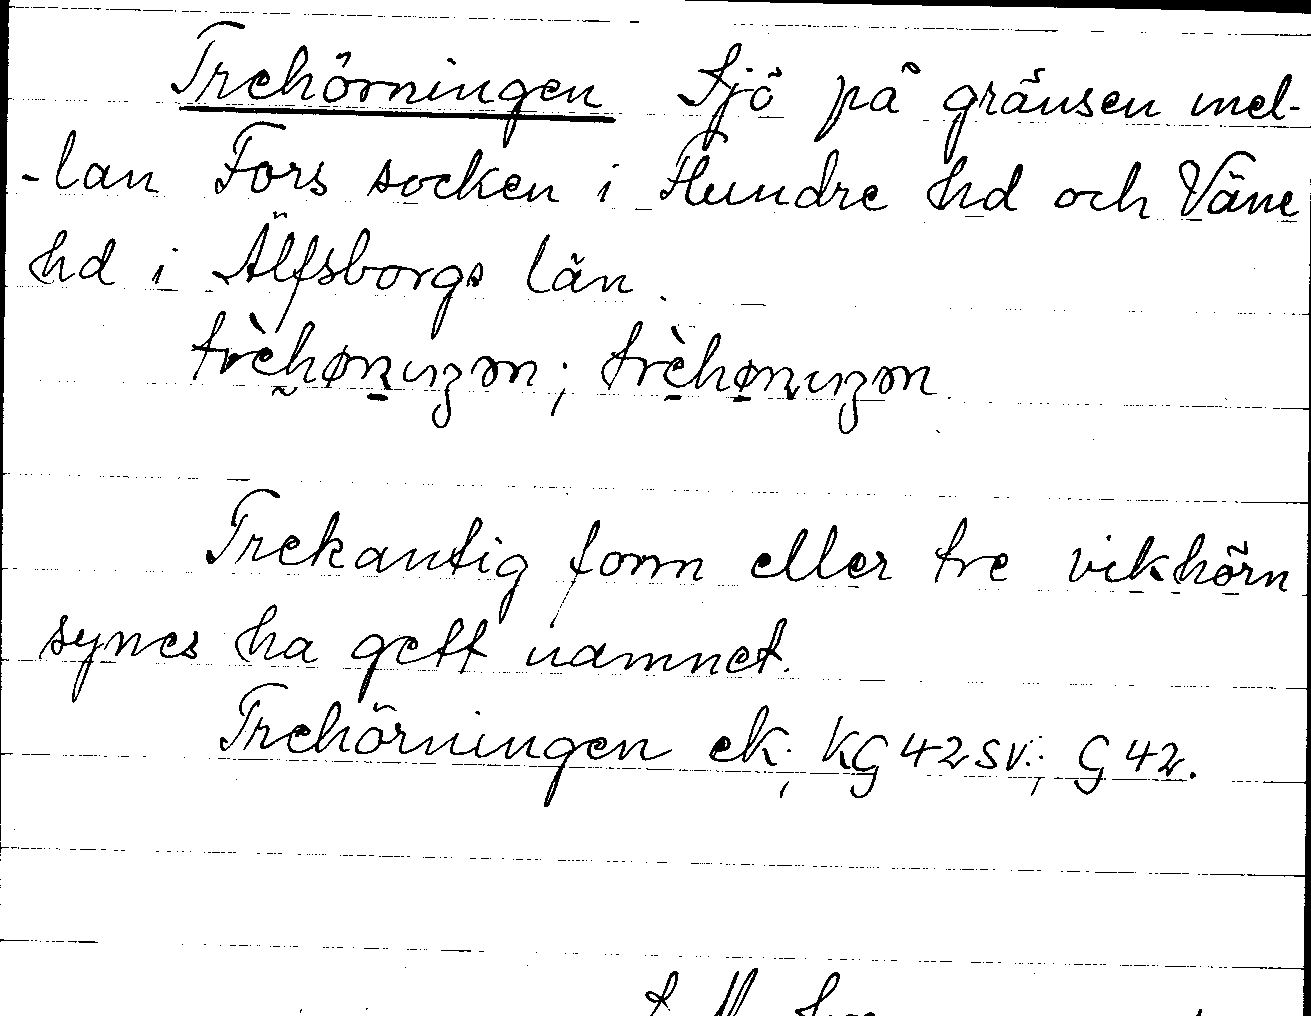 Trehörningen Sjö på gränsen mel-
-lan Fors socken i Flundre hd och Väne
hd i Älfsborgs län.
trèhøṉıŋən; trèhøṉıŋən
Trekantig form eller tre vikhörn
synes ha gett namnet.
Trehörningen ek; KG 42 SV.; G 42.